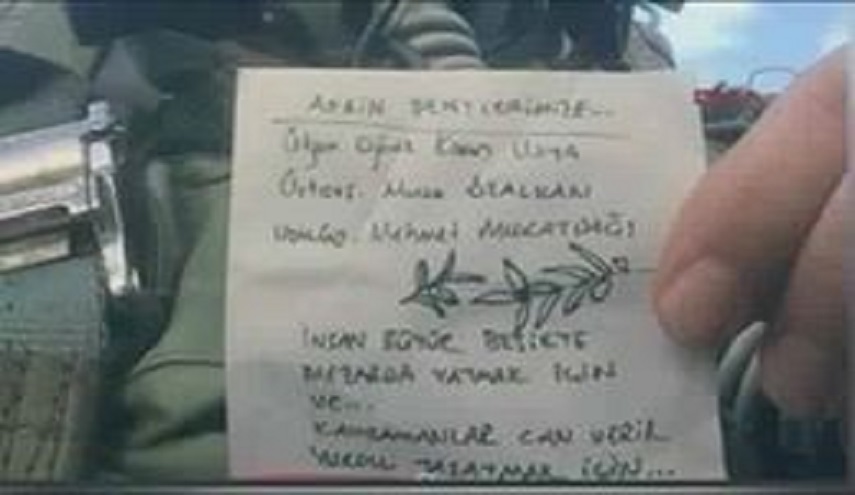 AFRİN ŞEHİTLERİMİZE...
Oğuz Kaan Usta
Üstçvş. Musa ÖZALKAN
Mehmet MURATDAĞI
İNSAN BÜYÜR BEŞİKTE
MEZARDA YATMAK İÇİN
VE...
KAHRAMANLAR CAN VERİR
YURDU YAŞATMAK İÇİN...